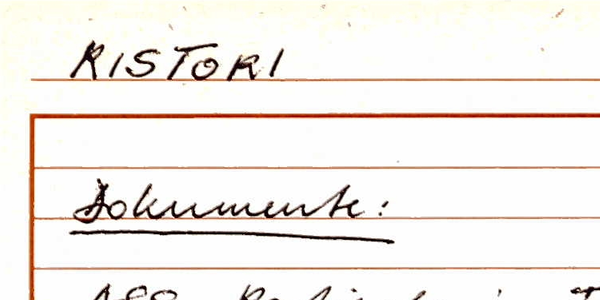 RISTORI
Dokumente: